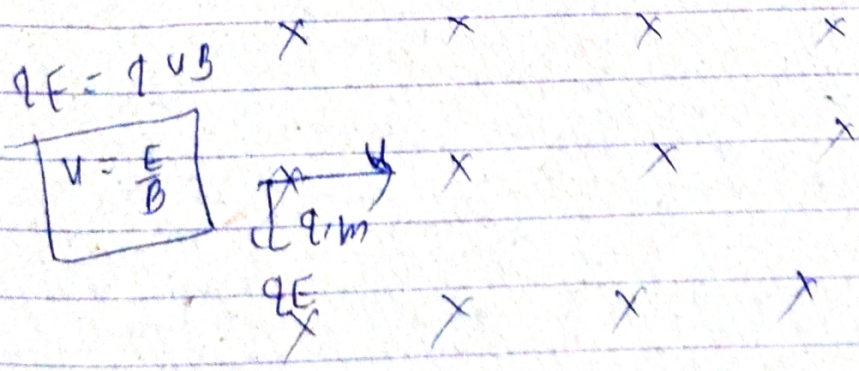 × × × ×
qE = qvB
v = E/B
× v × × ×
q, m
qE
× × × ×